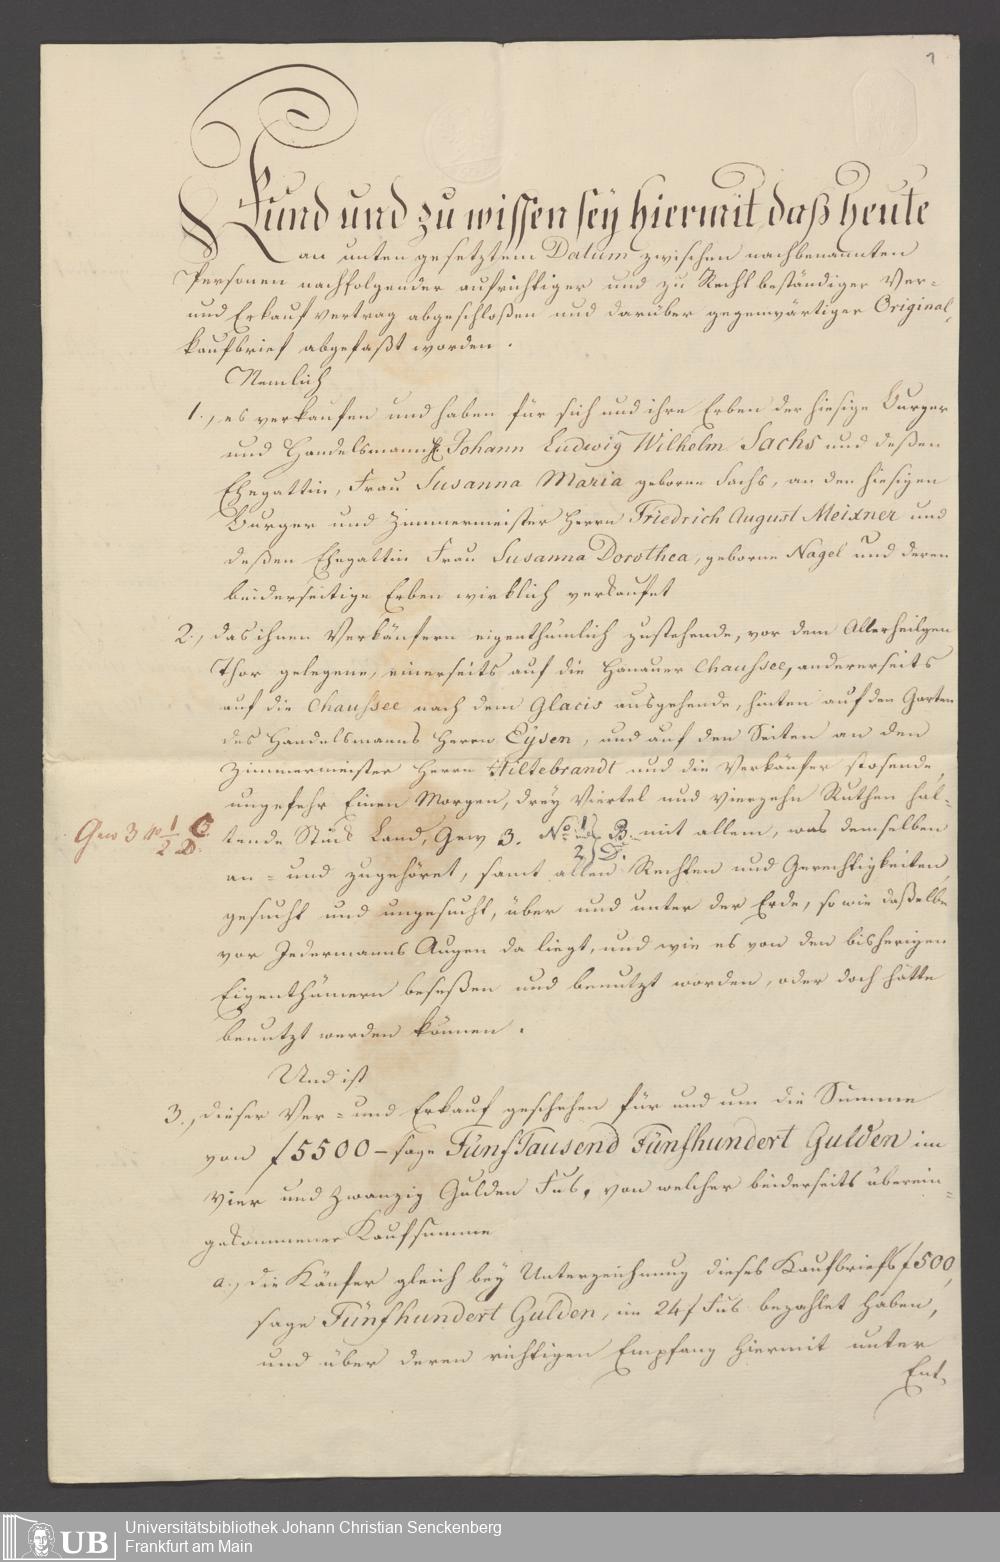 1
Kund und zu wissen sey hiermit, daß heute
an unten gesetztem Datum zwischen nachbenannten
Personen nachfolgender aufrichtiger und zu Recht beständiger Ver=
und Erkauf vertrag abgeschloßen und darüber gegenwärtiger Original,
kaufbrief abgefaßt worden.
Nemlich
1., es verkaufen und haben für sich und ihre Erben der hiesige Burger
und Handelsmann Johann Ludwig Wilhelm Sachs und deßen
Ehegattin, Frau Susanna Maria geborne Sachs, an den hiesigen
Burger und Zimmermeister Herrn Friedrich August Meixner und
deßen Ehegattin Frau Susanna Dorothea, geborne Nagel und deren
beiderseitige Erben wirklich verkaufet
2., das ihnen Verkäufern eigenthümlich zustehende, vor dem Allerheilgen
Thor gelegene, einerseits auf die Hanauer Chaussee, andererseits
auf die Chaussee nach dem Glacis ausgehende, hinten auf den Garten
des Handelsmanns Herrn Eysen, und auf den Seiten an den
Zimmermeister Herrn Hiltebrandt und die Verkäufer stosende,
ungefehr Einen Morgen, drey Viertel und vierzehn Ruthen hal=
Gew 3 No 1/2 C. D. tende Stück Land, Gew 3. No. 1 und 2 B. D. mit allem, was demselben
an= und zugehöret, samt allen Rechten und Gerechtigkeiten,
gesucht und ungesucht, über und unter der Erde, so wie daßelbe
vor Jedermanns Augen da liegt, und wie es von den bisherigen
Eigenthümern beseßen und benutzt worden, oder doch hätte
benutzt werden können.
Und ist
3., dieser Ver= und Erkauf geschehen für und um die Summe
von f 5500 – sage Fünf Tausend Fünfhundert Gulden im
Vier und Zwanzig Gulden Fus, von welcher beiderseits überein=
gekommener Kaufsumme
a., die Käufer gleich bey Unterzeichnung dieses Kaufbriefs f 500,
sage Fünfhundert Gulden, im 24 f Fus bezahlet haben,
und über deren richtigen Empfang hiermit unter
Ent,
UB
Universitätsbibliothek Johann Christian Senckenberg
Frankfurt am Main